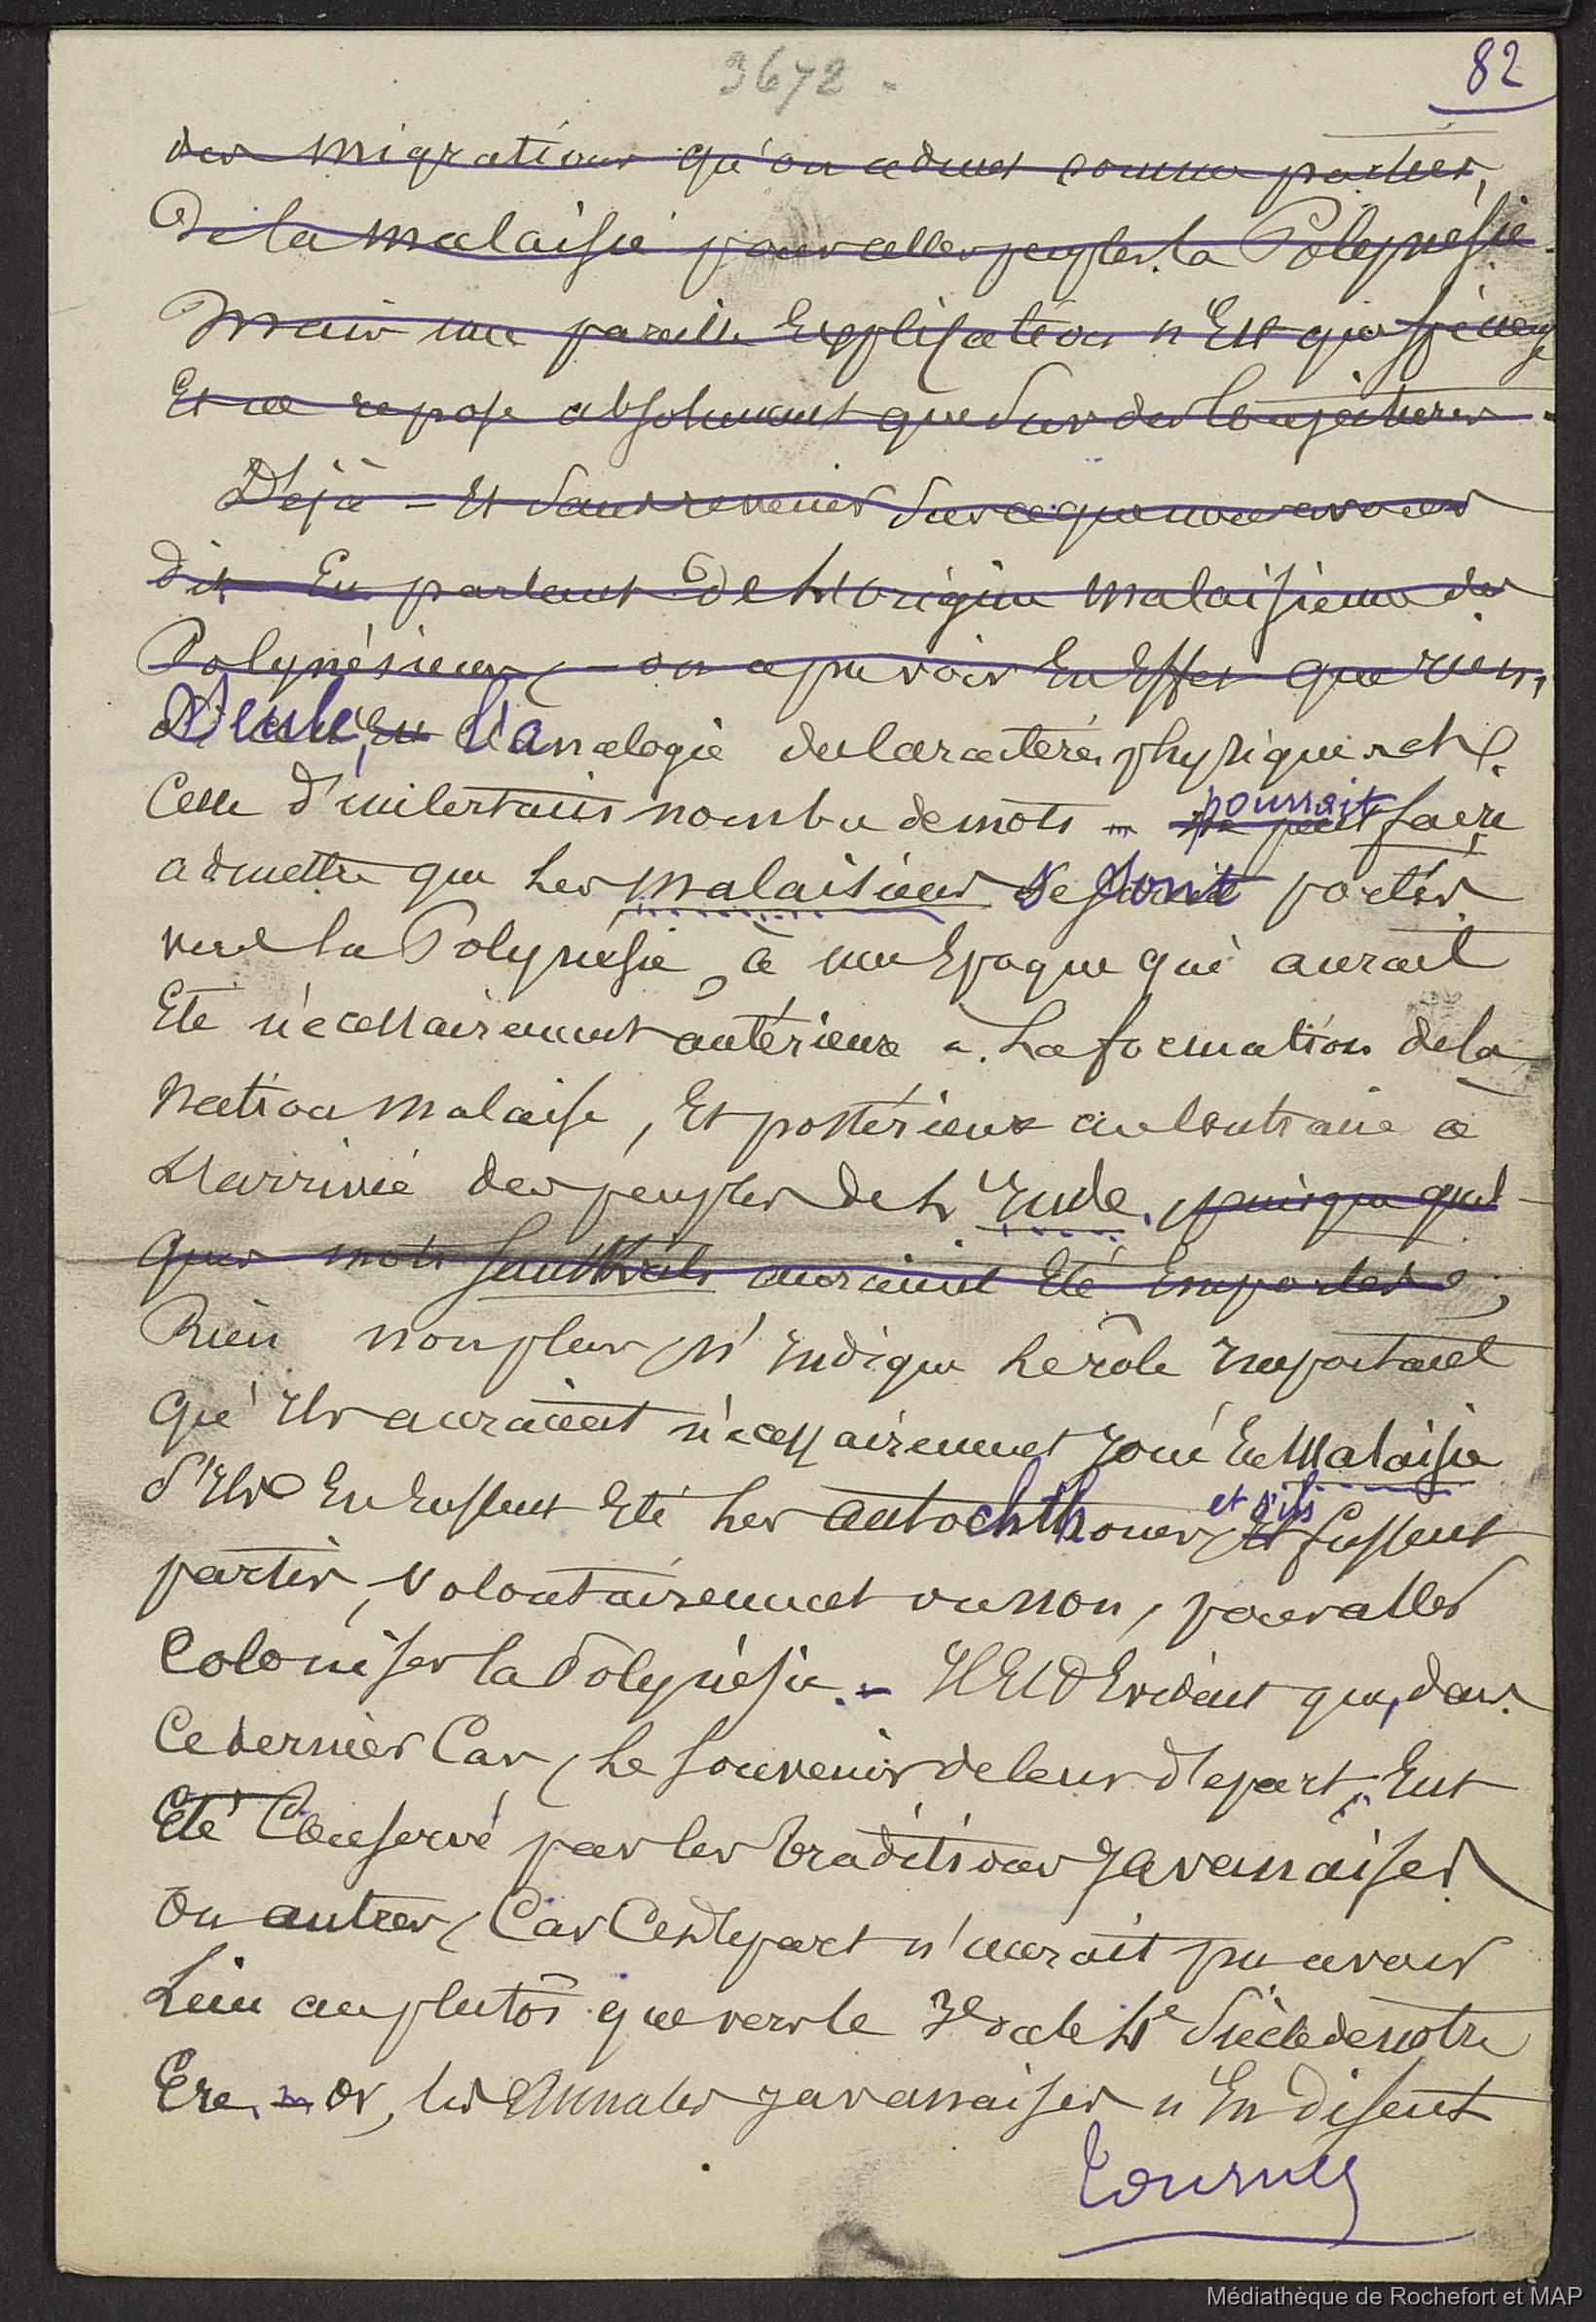 3672 -
82
des migrations qu'on admet comme parties,
De la malaisie pour aller peupler la Polynésie.
Mais une pareille Explication n'Est que
Et ne repose absolument que sur des Conjectures -
Déjà - Et sans revenir sur ce que nous avons
dit En parlant De L'origine malaisienne des
Polynésiens, - on a pu voir En Effet que rien,
Seule, l'analogie des Caractères physiques et
Celle d'un Certain nombre de mots - pourrait faire
admettre que Les malaisiens se sont portés
vers La Polynésie, à une Epoque qui aurait
Eté nécessairement antérieure à La formation de la
Nation malaise, Et postérieure au Contraire à
L'arrivée des peuples de L'Inde, puisque quel-
ques mots Sanskrits auraient Eté Emportés ;
Rien non plus, n'Indique Le rôle Important
qu'Ils auraient nécessairement Joué En Malaisie
S'Ils En Eussent Eté Les autochthones, et s'ils fussent
partis, volontairement ou non, pour aller
Coloniser la Polynésie. - Il Est Evident que, dans
Ce dernier Cas, Le Souvenir de leur départ, Eut
Eté Conservé par les traditions Javanaises
ou autres, Car Ce départ n'aurait pu avoir
Lieu au plutôt que vers le 3e ou le 4e Siècle de notre
Ere. - or, les Annales Javanaises n'En disent
Tournez
Médiathèque de Rochefort et MAP